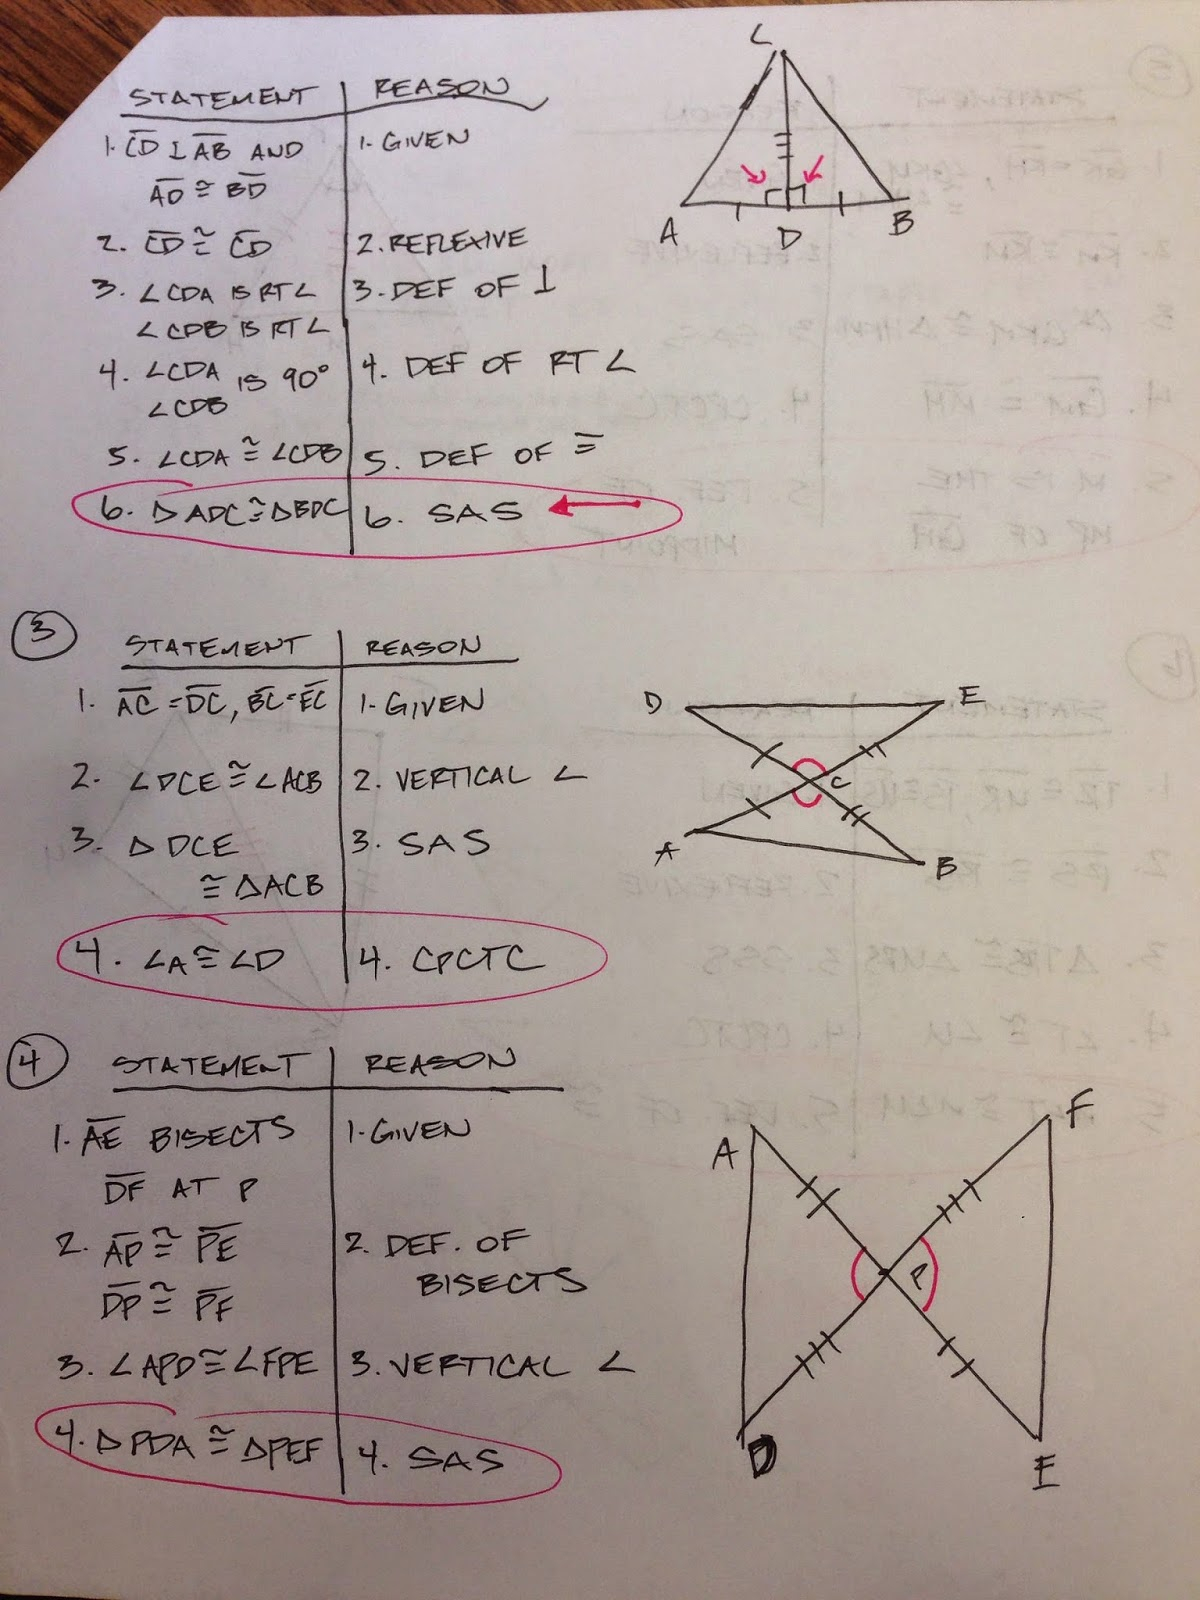 STATEMENT REASON
1. C̅D̅ ⊥ A̅B̅ AND 1. GIVEN
A̅D̅ ≅ B̅D̅
2. C̅D̅ ≅ C̅D̅ 2. REFLEXIVE
3. ∠CDA IS RT∠ 3. DEF OF ⊥
∠CDB IS RT∠
4. ∠CDA IS 90° 4. DEF OF RT ∠
∠CDB
5. ∠CDA ≅ ∠CDB 5. DEF OF ≅
6. △ADC ≅ △BDC 6. SAS
C
A D B
3
STATEMENT REASON
1. A̅C̅ = D̅C̅, B̅C̅ = E̅C̅ 1. GIVEN
2. ∠DCE ≅ ∠ACB 2. VERTICAL ∠
3. △DCE 3. SAS
≅ △ACB
4. ∠A ≅ ∠D 4. CPCTC
D E
C
A B
4
STATEMENT REASON
1. A̅E̅ BISECTS 1. GIVEN
D̅F̅ AT P
2. A̅P̅ ≅ P̅E̅ 2. DEF. OF
D̅P̅ ≅ P̅F̅ BISECTS
3. ∠APD ≅ ∠FPE 3. VERTICAL ∠
4. △PDA ≅ △PEF 4. SAS
A F
P
D E